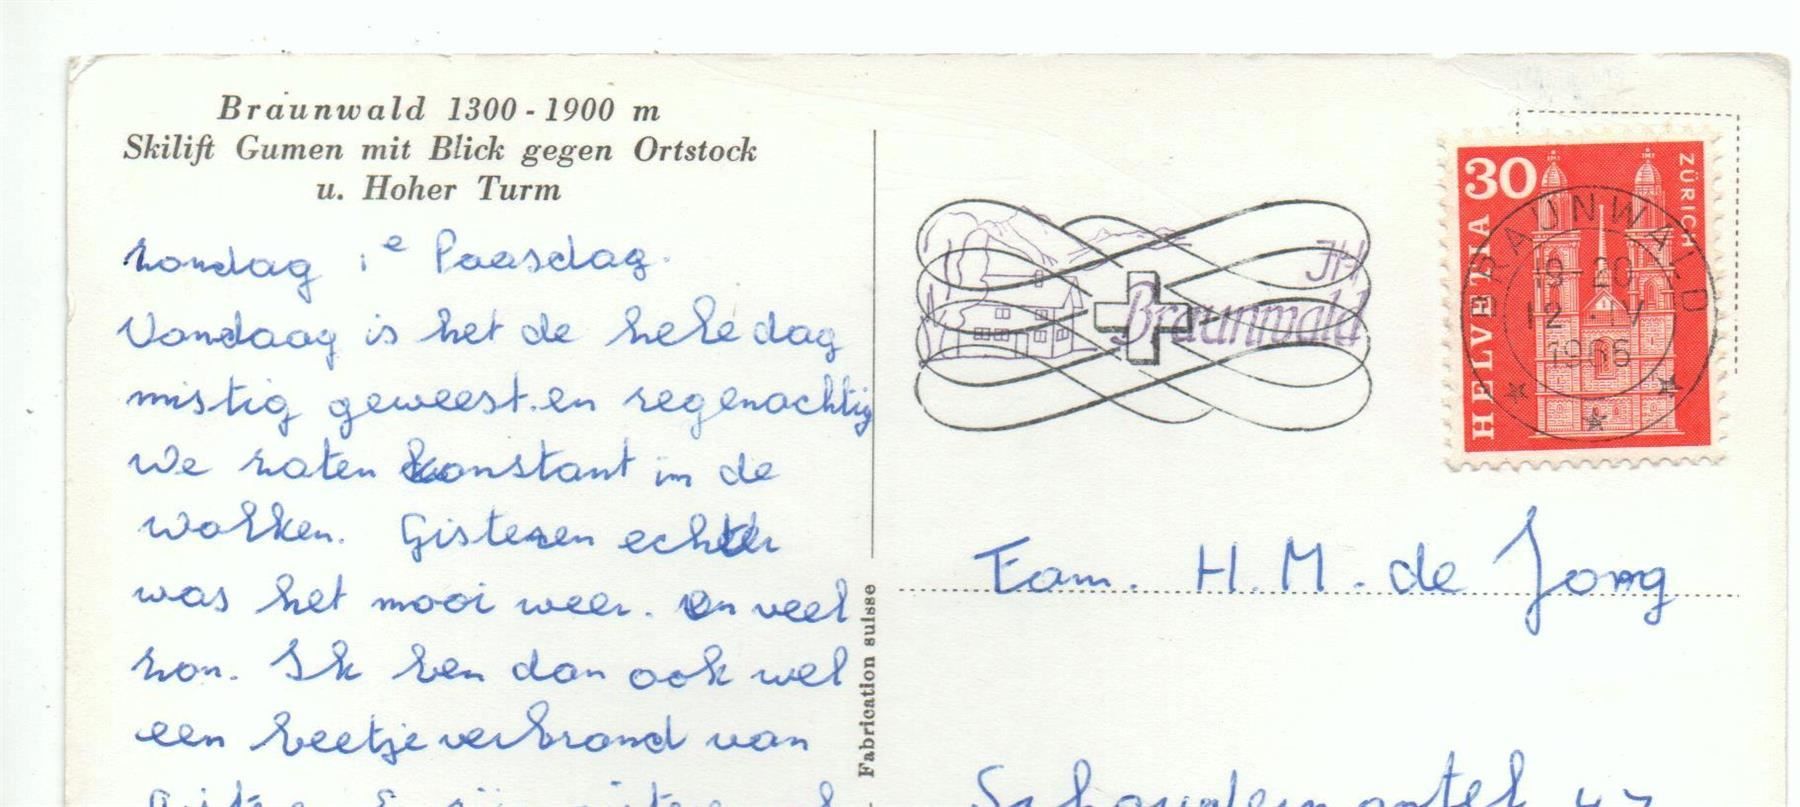 Braunwald 1300 - 1900 m
Skilift Gumen mit Blick gegen Ortstock
u. Hoher Turm
zondag 1e Paasdag.
Vandaag is het de hele dag
mistig geweest en regenachtig
We zaten konstant in de
wolken. Gisteren echter
was het mooi weer. en veel
zon. Ik ben dan ook wel
een beetje verbrand van
Fabrication suisse
Braunwald
HELVETIA
30
ZÜRICH
BRAUNWALD
19-20
12.IV
1966
Fam. H. M. de Jong